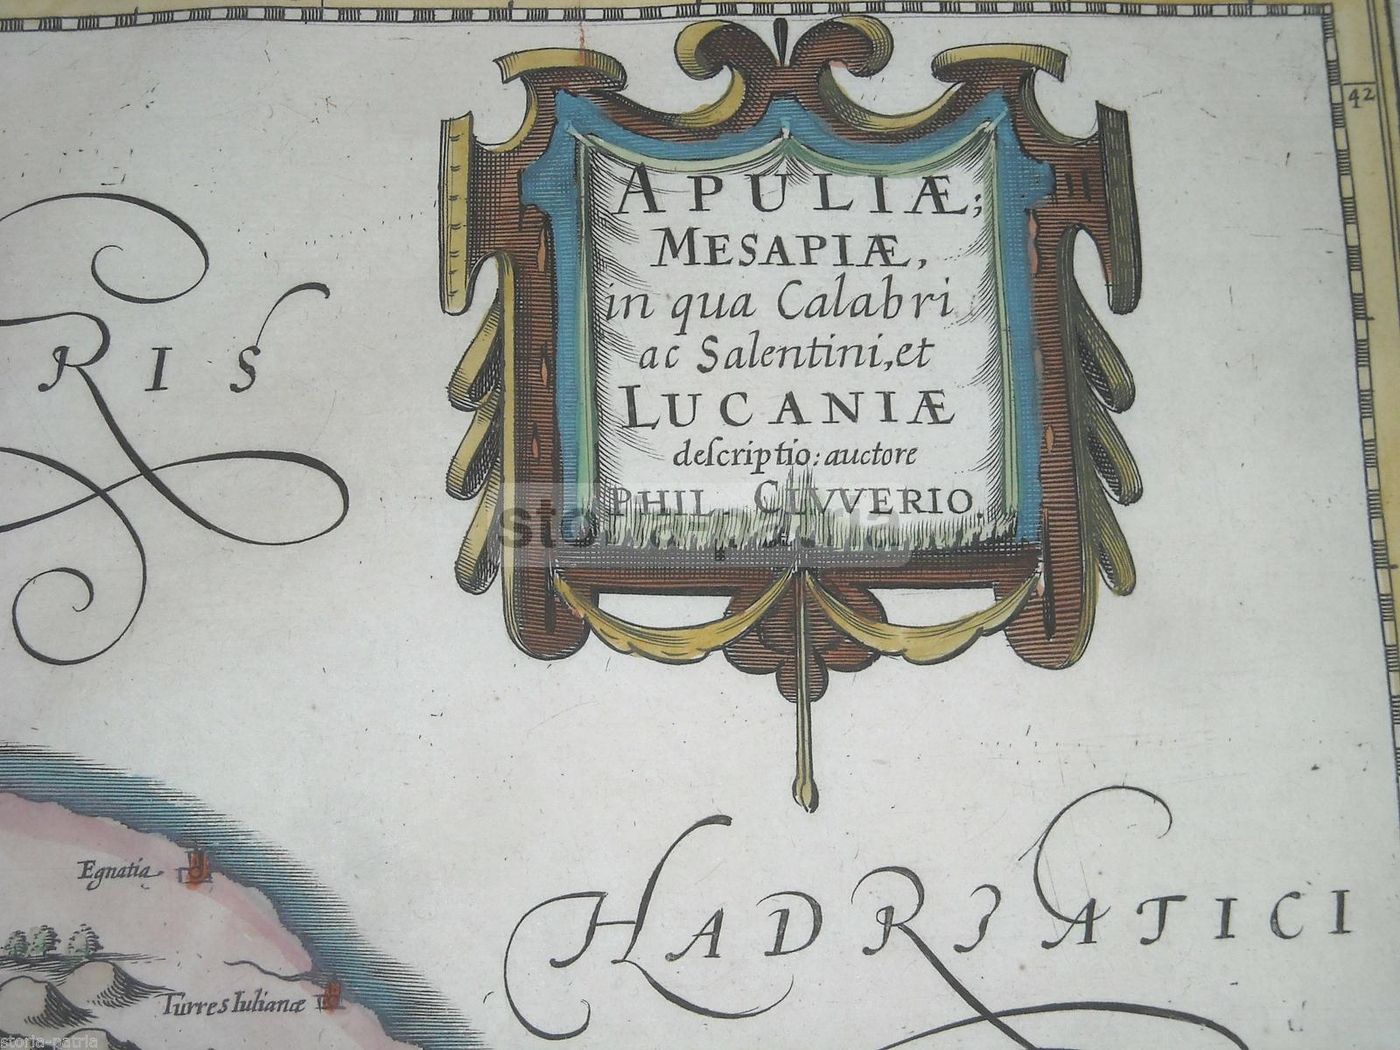 42
APULIÆ;
MESAPIÆ,
in qua Calabri
ac Salentini, et
LUCANIÆ
deſcriptio: auctore
PHIL. CLVVERIO.
RIS
storia-patria
Egnatia
HADRIATICI
Turres Iulianæ
storia-patria